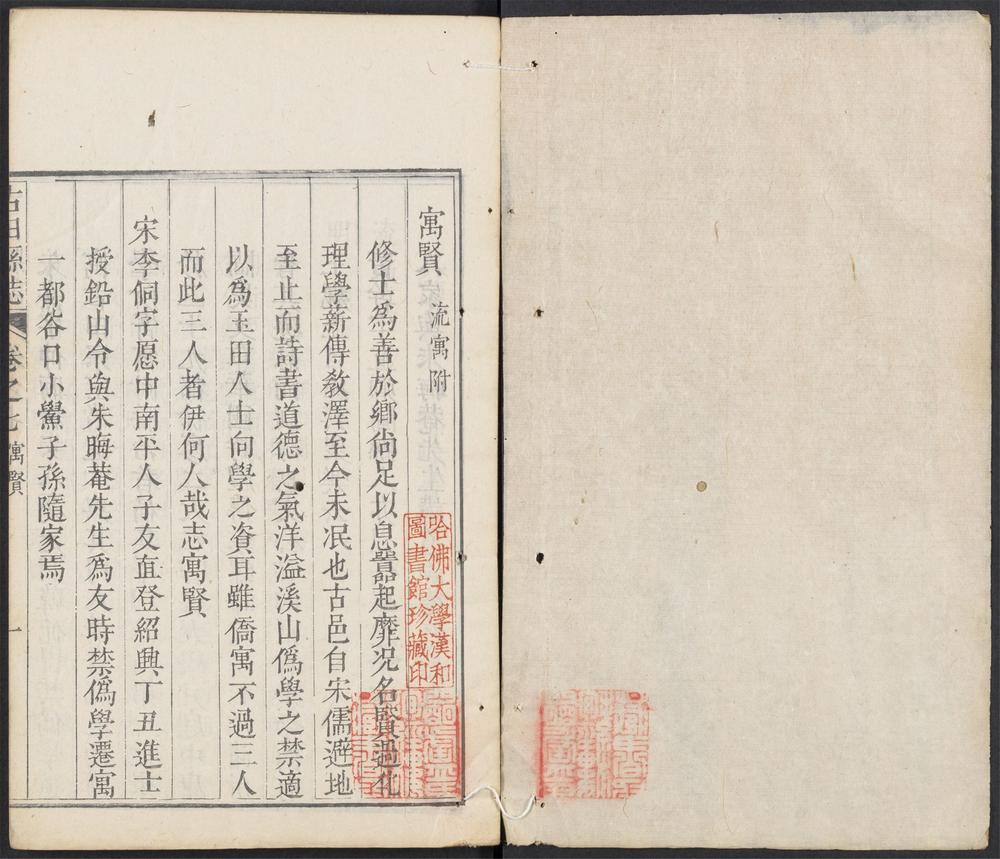 寓賢 流寓附
修士為善於鄉尙足以息囂起靡况名賢過化
理學薪傳敎澤至今未泯也古邑自宋儒避地
至止而詩書道德之氣洋溢溪山僞學之禁適
以為玉田人士向學之資耳雖僑寓不過三人
而此三人者伊何人哉志寓賢
宋李侗字愿中南平人子友直登紹興丁丑進士
授鉛山令與朱晦菴先生為友時禁僞學遷寓
一都谷口小黌子孫隨家焉
古田縣志 卷之七 寓賢 一
哈佛大學漢和
圖書館珍藏印